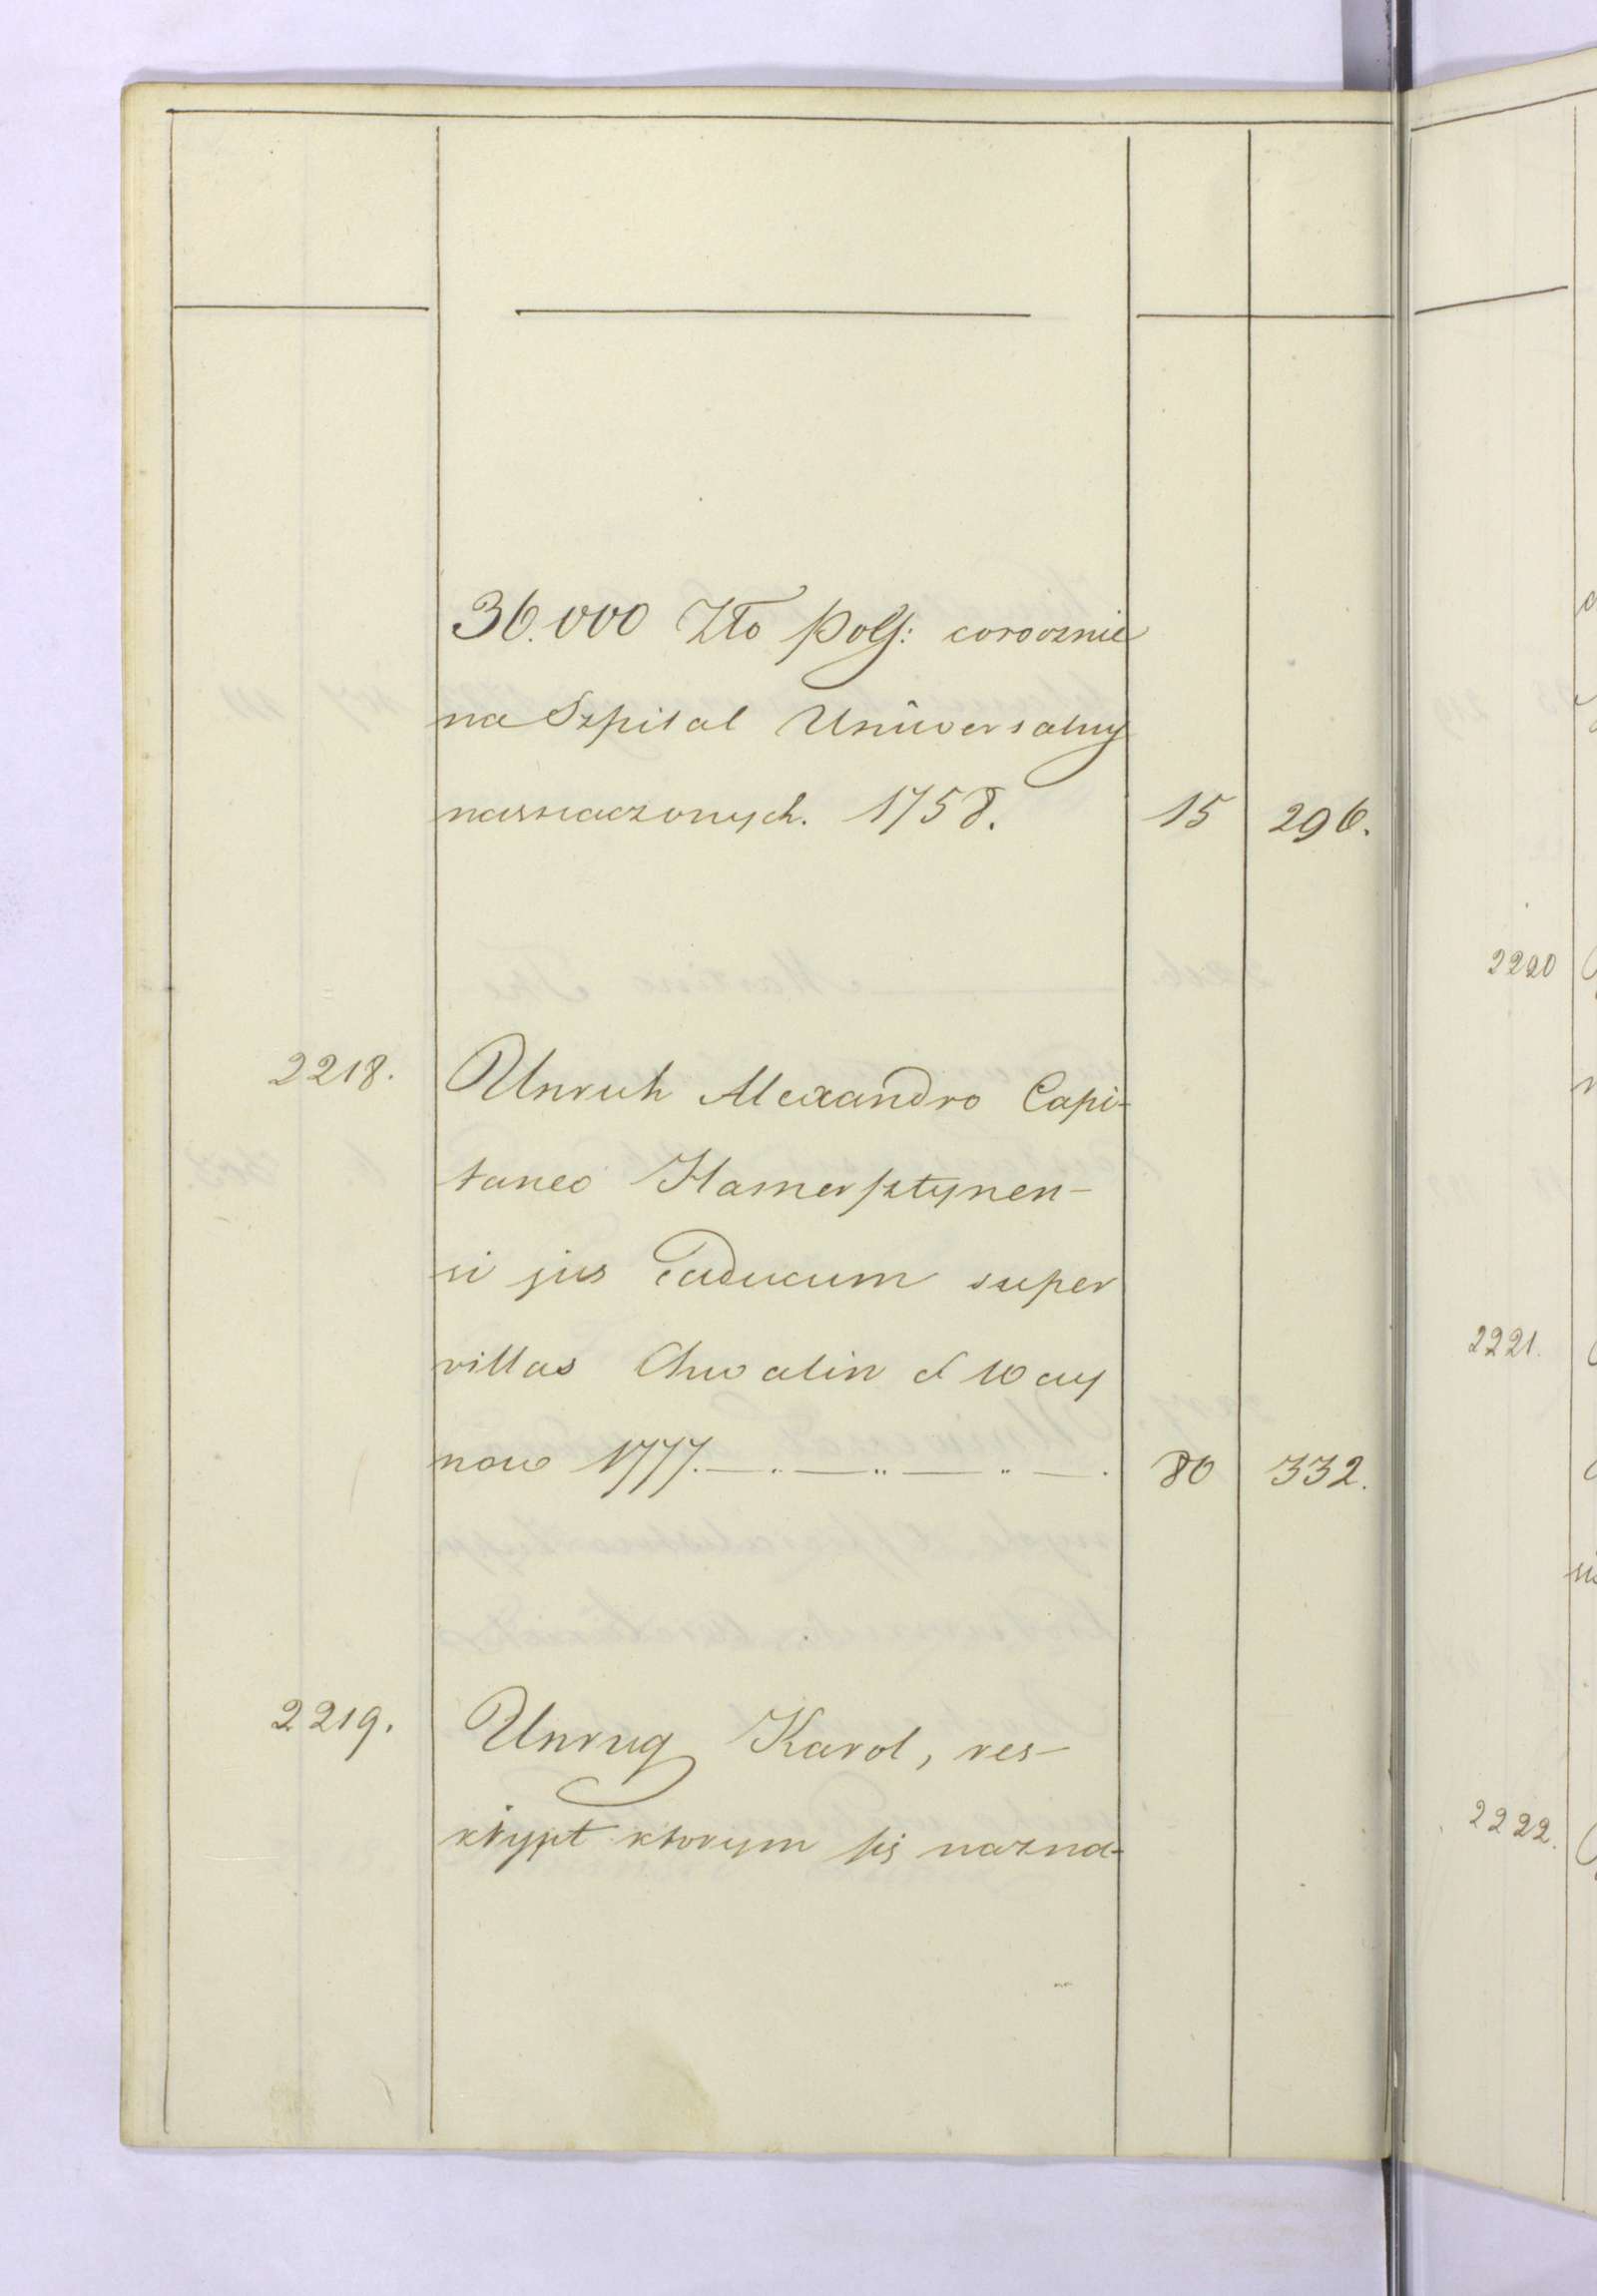 36.000 Zło Pols: corocznie
na Szpital Uniwersalny
naznaczonych. 1758. 15 296.
2218. Unruh Alexandro Capi-
taneo Hamersztynen-
si jus Caducum super
villas Chwalin et Woy
nowo 1777. 80 332.
2219. Unrug Karol, res-
krypt ktorym się nazna-
2220
2221.
2222.